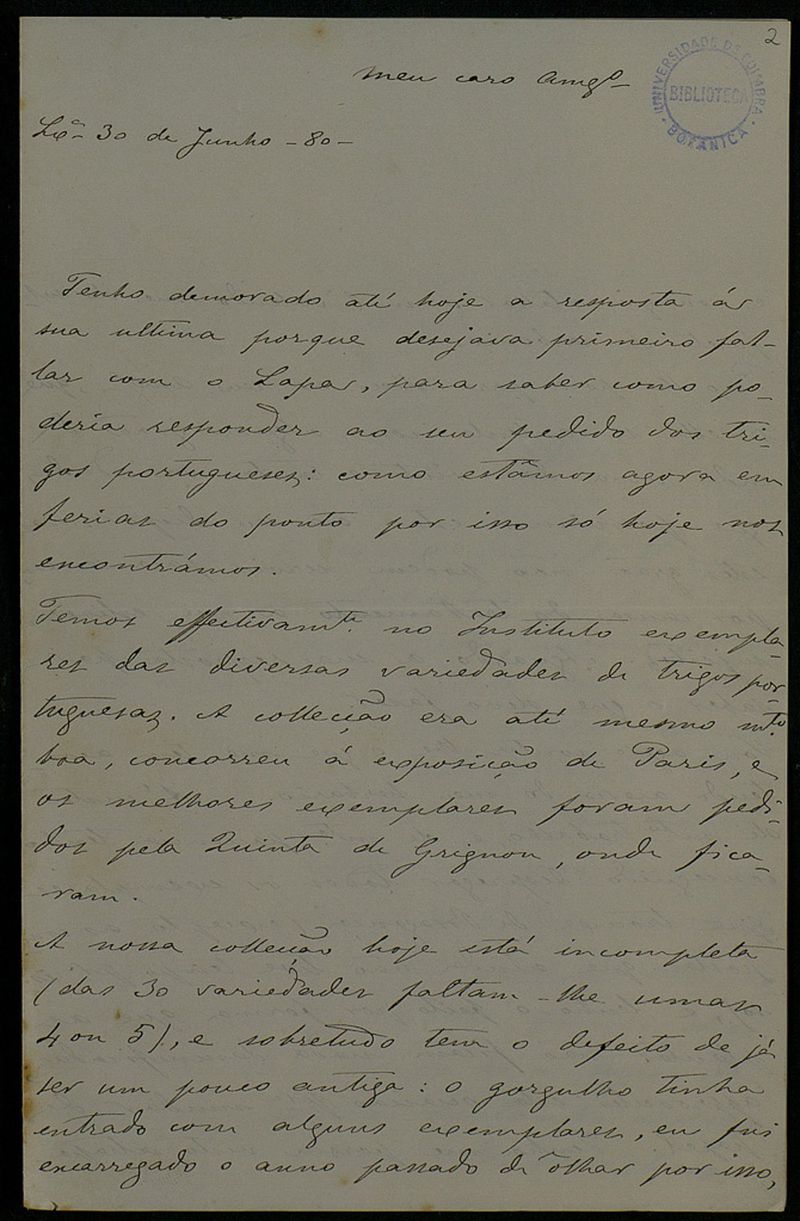 2
Meu caro Amgº
UNIVERSIDADE DE COIMBRA
BIBLIOTECA
BOTANICA
Lxª 30 de Junho - 80 -
Tenho demorado até hoje a resposta á
sua ultima porque desejava primeiro fal-
lar com o Lapa, para saber como po-
deria responder ao seu pedido dos tri-
gos portugueses: como estâmos agora em
ferias do ponto por isso só hoje nos
encontrámos.
Temos effectivamte. no Instituto exempla-
res das diversas variedades de trigos por-
tuguesas. A collecção era até mesmo mto.
boa, concorreu á exposição de Paris, e
os melhores exemplares foram pedi-
dos pela Quinta de Grignon, onde fica-
ram.
A nossa collecção hoje está incompleta
(das 30 variedades faltam-lhe umas
4 ou 5), e sobretudo tem o defeito de já
ser um pouco antiga: o gorgulho tinha
entrado com alguns exemplares, eu fui
encarregado o anno passado de olhar por isso,